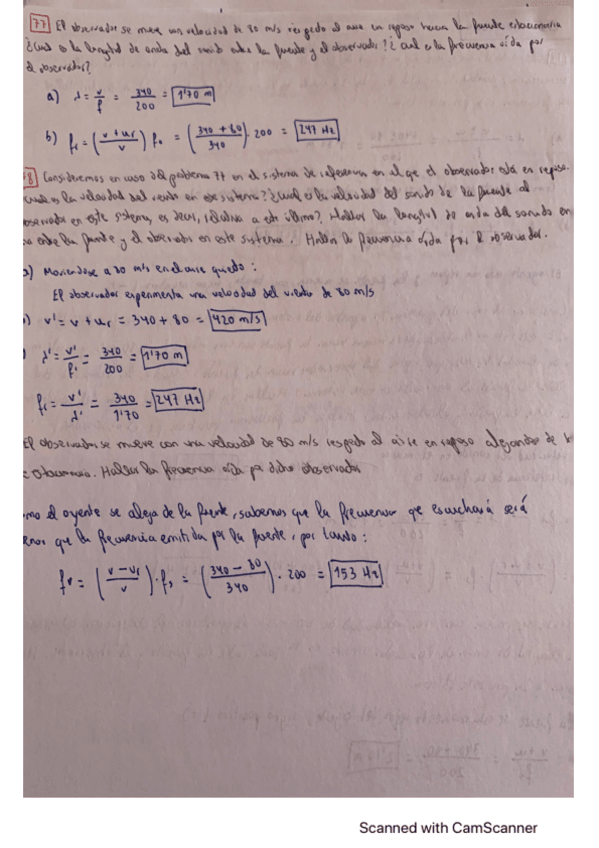 77 El observador se mueve con velocidad de 80 m/s respecto al aire en reposo hacia la fuente estacionaria
¿Cuál es la longitud de onda del sonido entre la fuente y el observador? ¿Cuál es la frecuencia oída por
el observador?
a) λ = v/f = 340/200 = 1'70 m
b) fr = (v + ur / v) fo = (340 + 80 / 340) · 200 = 247 Hz
8 Consideremos en caso del problema 77 en el sistema de referencia en el que el observador está en reposo.
es la velocidad del viento en ese sistema? ¿Cuál es la velocidad del sonido de la fuente al
observador en este sistema, es decir, relativa a este último? Hallar la longitud de onda del sonido en
entre la fuente y el observador en este sistema. Hallar la frecuencia oída por el observador.
) Moviendose a 80 m/s en el aire quieto:
El observador experimenta una velocidad del viento de 80 m/s
) v' = v + ur = 340 + 80 = 420 m/s
λ' = v'/f' = 340/200 = 1'70 m
fr = v'/λ' = 340/1'70 = 247 Hz
El observador se mueve con una velocidad de 80 m/s respecto al aire en reposo alejandose de
Hallar la frecuencia oída por dicho observador
mo el oyente se aleja de la fuente, sabemos que la frecuencia que escuchará será
enos que la frecuencia emitida por la fuente, por tanto:
fr = (v - ur / v) · fs = (340 - 80 / 340) · 200 = 153 Hz
Scanned with CamScanner